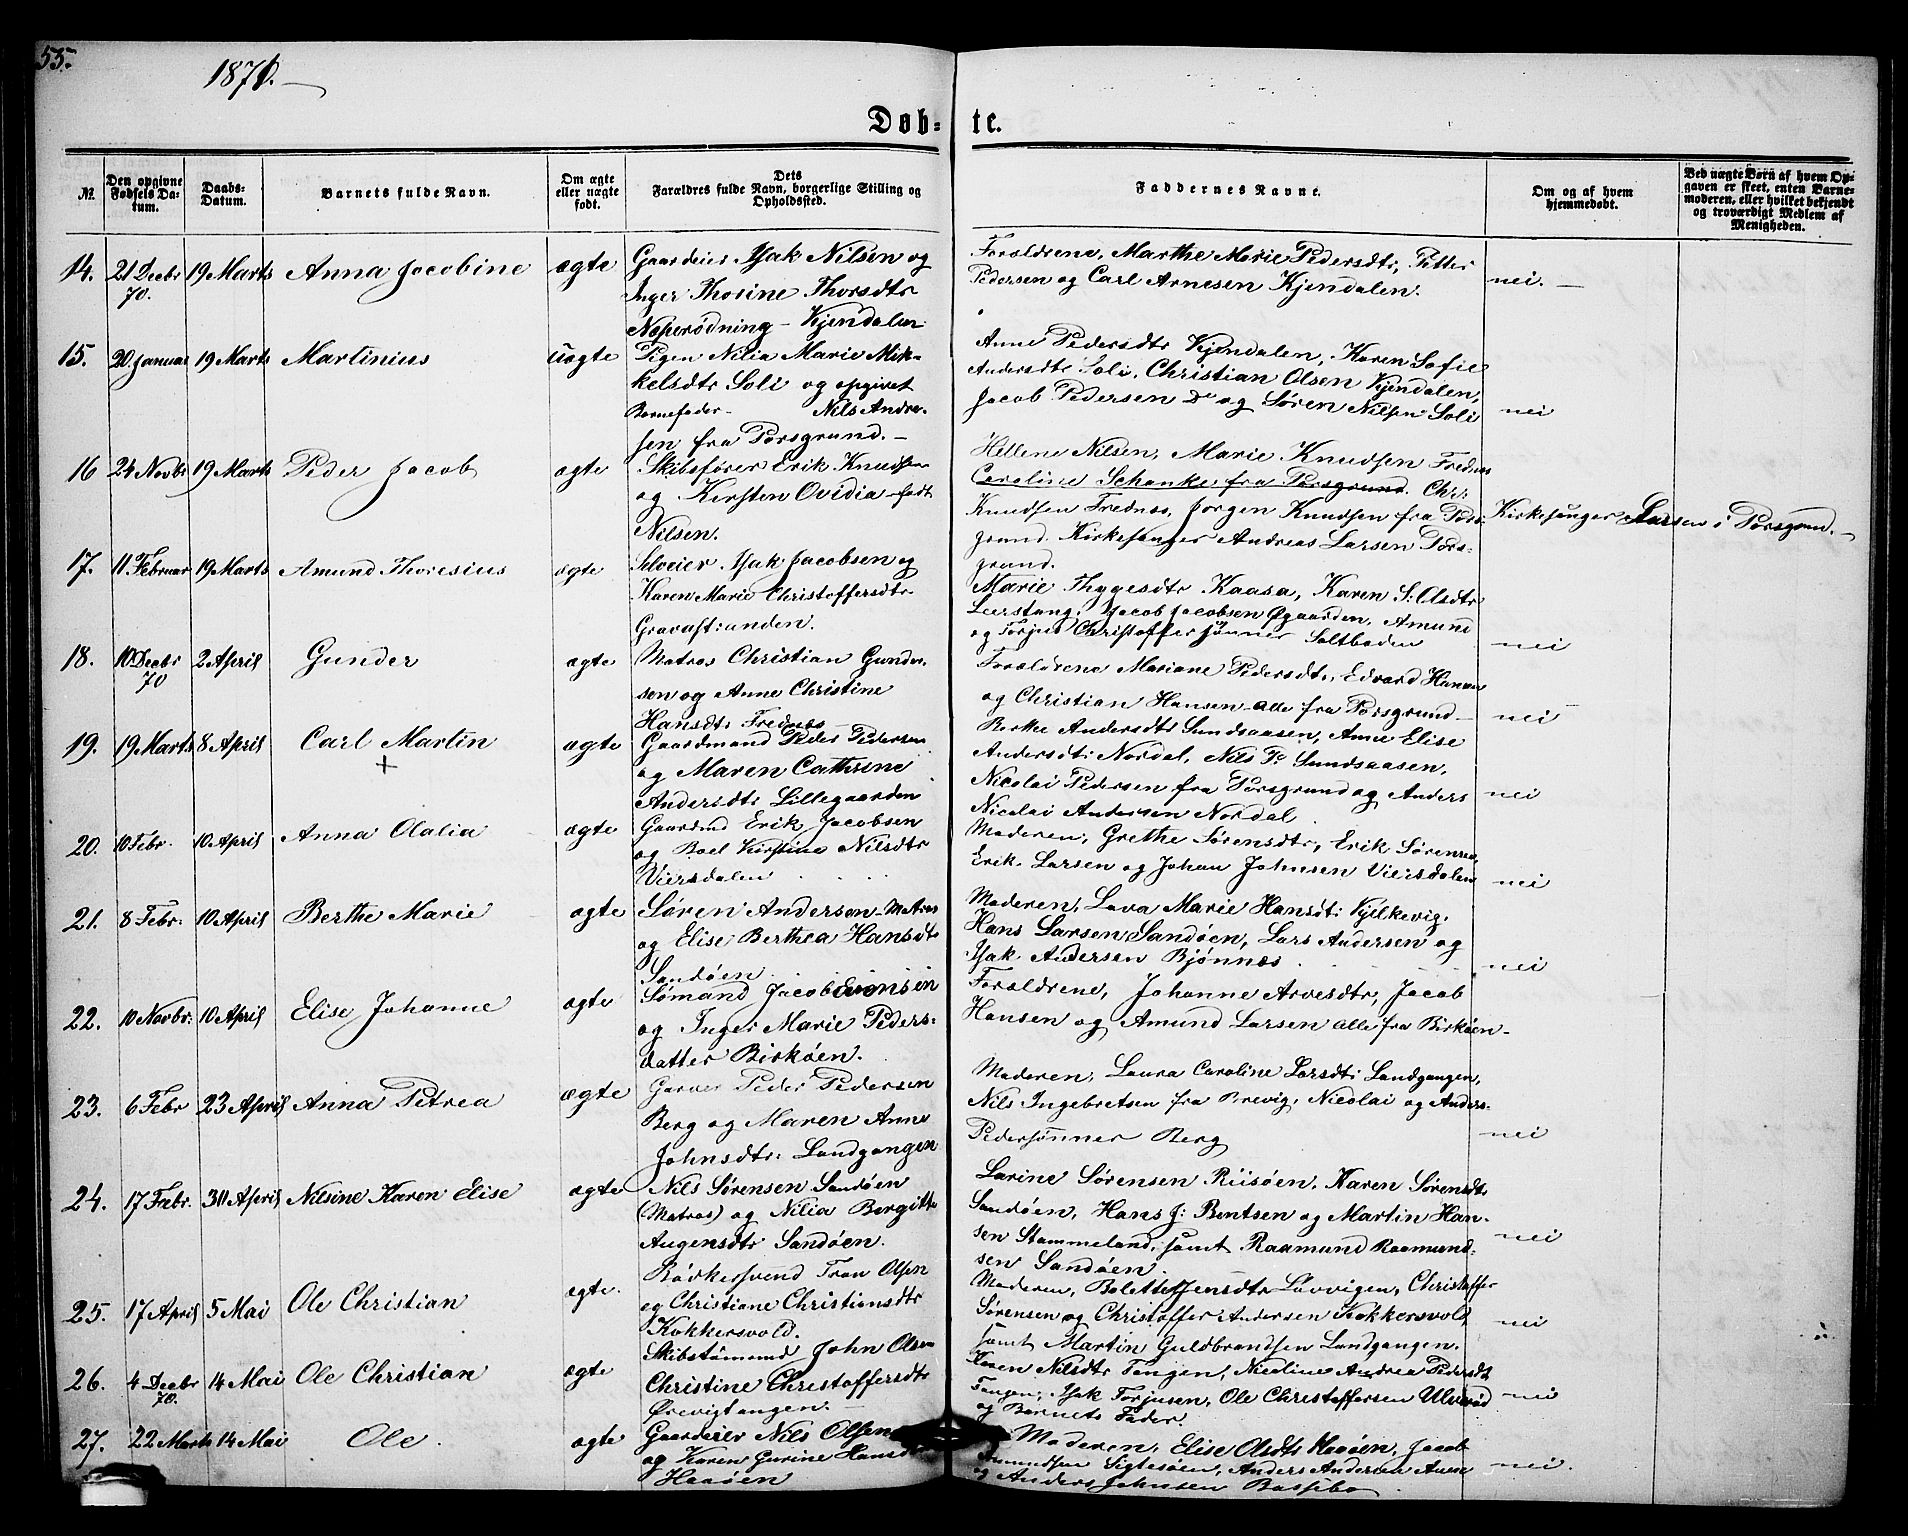 55.
1871.
Døb-
te.
№
Den opgivne Fødsels Datum.
Daabs-Datum.
Barnets fulde Navn.
Om ægte eller uægte født.
Dets Forældres fulde Navn, borgerlige Stilling og Opholdssted.
Faddernes Navne.
Om og af hvem hjemmedøbt.
Ved uægte Børn af hvem Opgaven er skeet, enten Barnemoderen, eller hvilket bekjendt og troværdigt Medlem af Menigheden.
14. 21 Decbr 70. 19 Marts Anna Jacobine ægte
Gaardeier Isak Nilsen og
Inger Thorine Thorsdtr
Næperødning - Kjendalen
Forældrene, Marthe Marie Pedersdtr, Petter
Pedersen og Carl Arnesen Kjendalen.
nei.
15. 20 Januar 19 Marts Martinius uægte
Pigen Nilia Marie Mik-
kelsdtr Soli og opgivet
Barnefader - Nils Andre-
sen fra Porsgrund.
Anne Pedersdtr Kjendalen, Karen Sofie
Andersdtr Soli, Christian Olsen Kjendalen,
Jacob Pedersen Do og Søren Nilsen Soli
nei
16 24 Novbr 19 Marts Peder Jacob ægte
Skibsfører Erik Knudsen
og Kirsten Ovidia født
Nilsen.
Hellene Nilsen, Marie Knudsen Frednes
Caroline Schanke fra Porsgrund. Chr:
Knudsen Frednes, Jørgen Knudsen fra Pors-
grund. Kirkesanger Andreas Larsen Pors-
grund.
Kirkesanger Larsen i Porsgrund.
17. 11 Februar 19 Marts Amund Thoresius ægte
Selveier Isak Jacobsen og
Karen Marie Christoffersdtr
Gravastranden.
Marie Thygesdtr Kaasa, Karen S: Olsdtr
Leerstang, Jacob Jacobsen Øgaarden, Amund
og Torjus Christoffersønner Saltboden
nei
18. 10 Decbr 70 2 April Gunder ægte
Matros Christian Gunder-
sen og Anne Christine
Hansdtr Frednes
Forældrene Mariane Pedersdtr, Edvard Hansen
og Christian Hansen alle fra Porsgrund
nei
19. 19 Marts 8 April Carl Martin + ægte
Gaardmand Peder Pedersen
og Maren Cathrine
Andersdtr Lillegaarden
Birthe Andersdtr Sundsaasen, Anne Elise
Andersdtr Nordal, Nils P. Sundsaasen,
Nicolai Pedersen fra Porsgrund og Anders
Nicolai Andersen Nordal
nei
20. 10 Febr. 10 April Anna Olalia ægte
Gaardmd Erik Jacobsen
og Boel Kirstine Nilsdtr
Viersdalen
Moderen, Grethe Sørensdtr, Erik Sørensen,
Erik Larsen og Johan Johnsen Viersdalen
nei
21. 8 Febr: 10 April Berthe Marie ægte
Søren Andersen Matros
og Elise Berthea Hansdtr
Sandøen
Moderen, Lava Marie Hansdt: Kjelkevig,
Hans Larsen Sandøen, Lars Andersen og
Isak Andersen Bjønnes
nei
22. 10 Novbr: 10 April Elise Johanne ægte
Sømand Jacob Evensen
og Inger Marie Peders-
datter Birkøen.
Forældrene, Johanne Arvesdtr, Jacob
Hansen og Amund Larsen alle fra Birkøen
23. 6 Febr 23 April Anna Petrea ægte
Garver Peder Pedersen
Berg og Maren Anne
Johnsdtr: Landgangen
Moderen, Laura Caroline Larsdt: Landgangen,
Nils Ingebretsen fra Brevig, Nicolai og Anders
Pedersønner Berg
nei
24. 17 Febr. 30 April Nilsine Karen Elise ægte
Nils Sørensen Sandøen
(Matros) og Nilia Bergitte
Augensdtr Sandøen.
Larine Sørensen Riisøen, Karen Sørensdtr
Sandøen, Hans J: Bentsen og Martin Han-
sen Stammeland, samt Raamund Raamund-
sen Sandøen.
nei
25. 17 April 5 Mai Ole Christian ægte.
Bødkersvend Tron Olsen
og Christiane Christiansdtr
Kokkersvold.
Moderen, Bolette Jensdtr Løvvigen, Christoffer
Sørensen og Christoffer Andersen Kokkersvold
samt Martin Guldbrandsen Landgangen.
nei
26. 4 Decbr 70. 14 Mai Ole Christian ægte
Skibstømmd John Olsen
Christine Christoffersdtr
Ørevigtangen.
Karen Nilsdtr Tangen, Nicoline Andrea Pedersdt
Tangen, Isak Torjusen, Ole Christoffersen Ulverød
og Barnets Fader.
nei
27. 22 Marts 14 Mai Ole. ægte
Gaardeier Nils Olsen
og Karen Gurine Hansdtr
Haaøen
Moderen, Elise Olsdtr Haaøen, Jacob
Amundsen Sigtesøen, Anders Andersen
og Anders Johnsen Bassebo
nei.